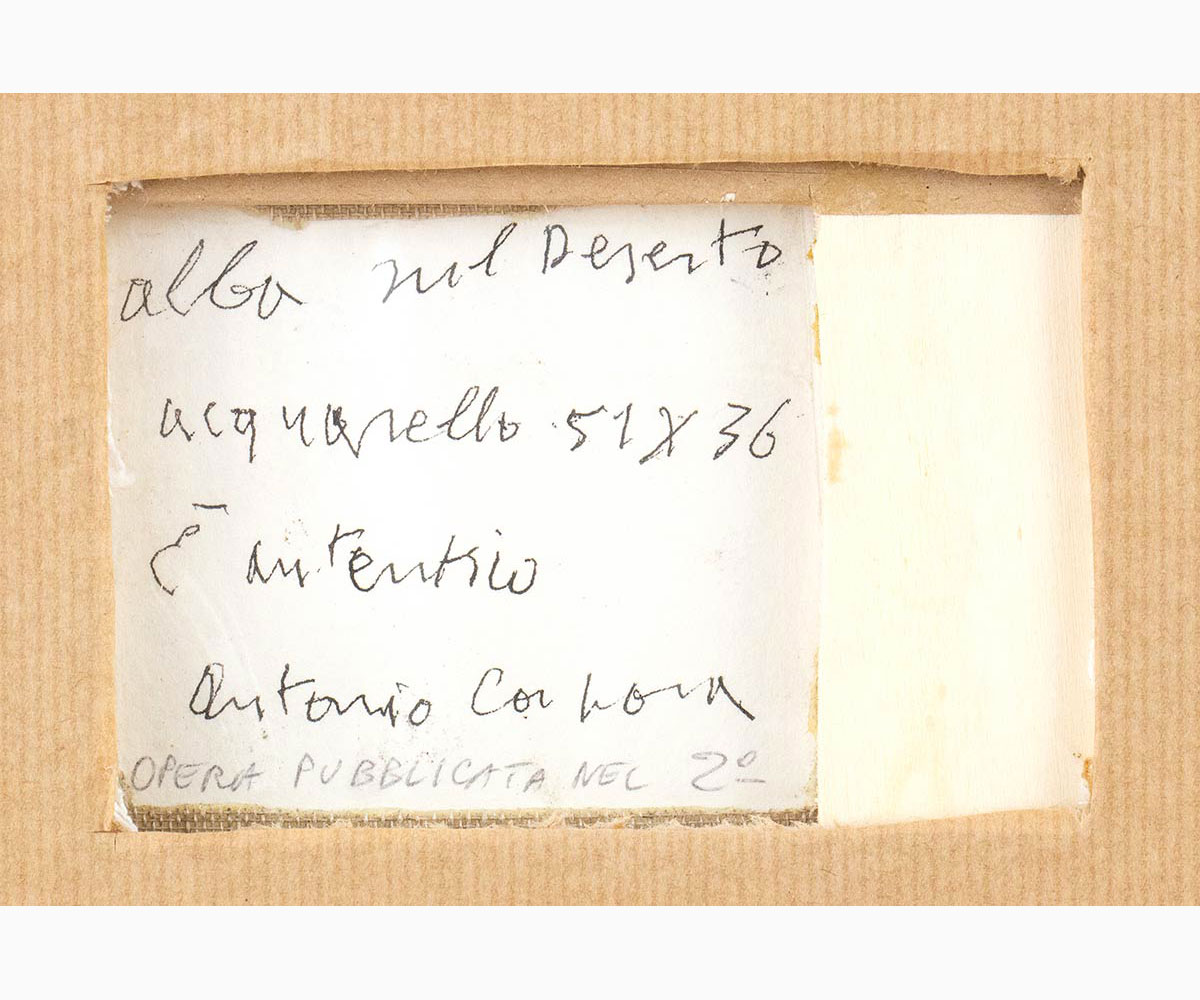 alba nel Deserto
acquarello 51X36
È autentico
Antonio Corpora
OPERA PUBBLICATA NEL 2º